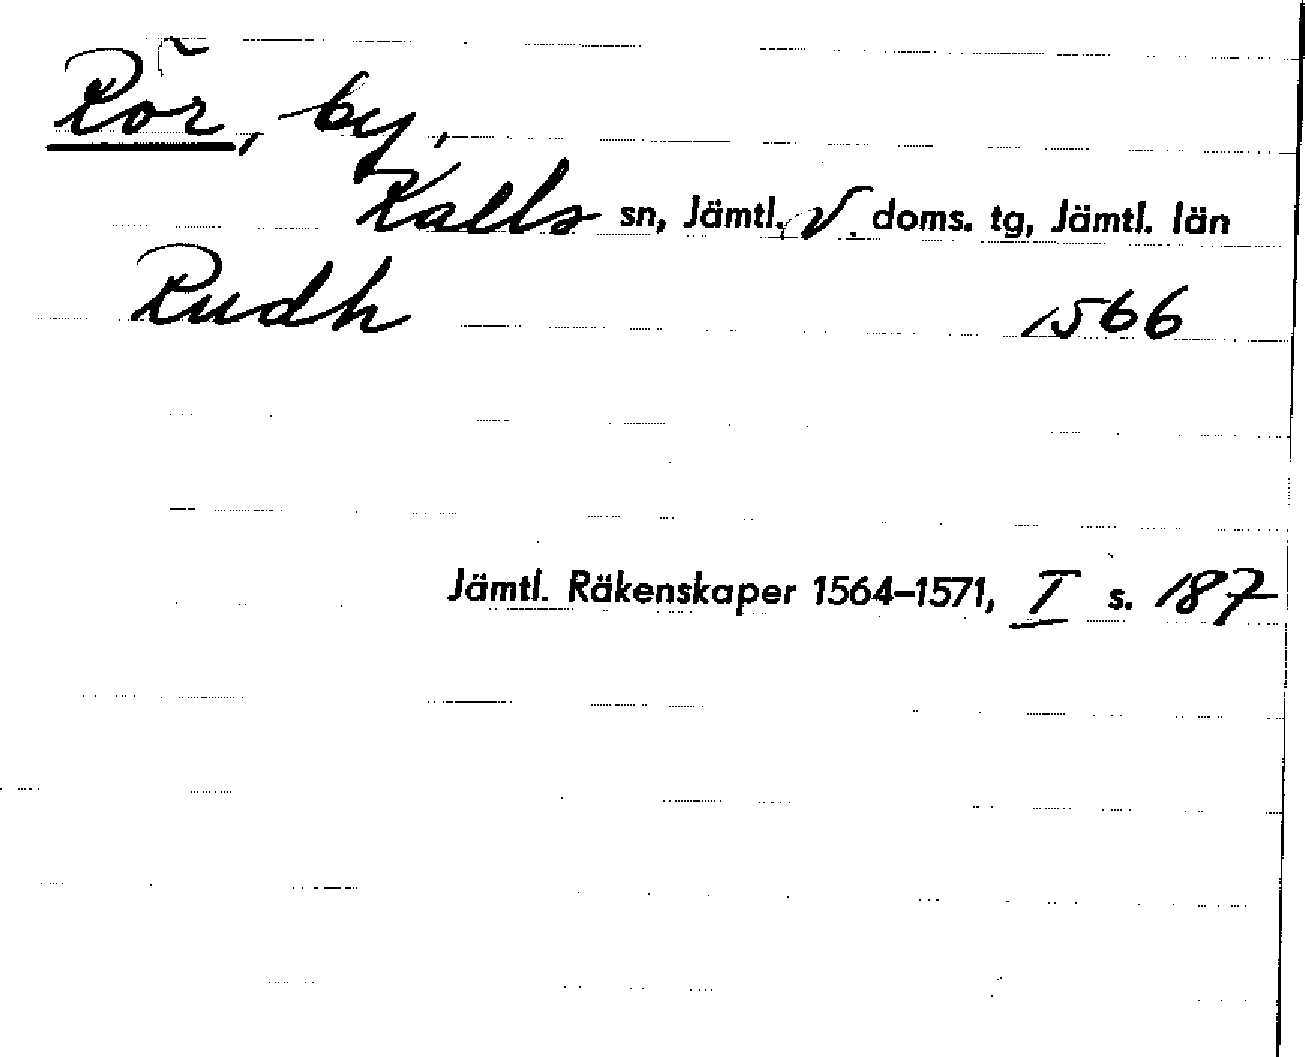 Rör, by,
Kalls sn, Jämtl. V. doms. tg, Jämtl. län
Rudh 1566
Jämtl. Räkenskaper 1564–1571, I s. 187